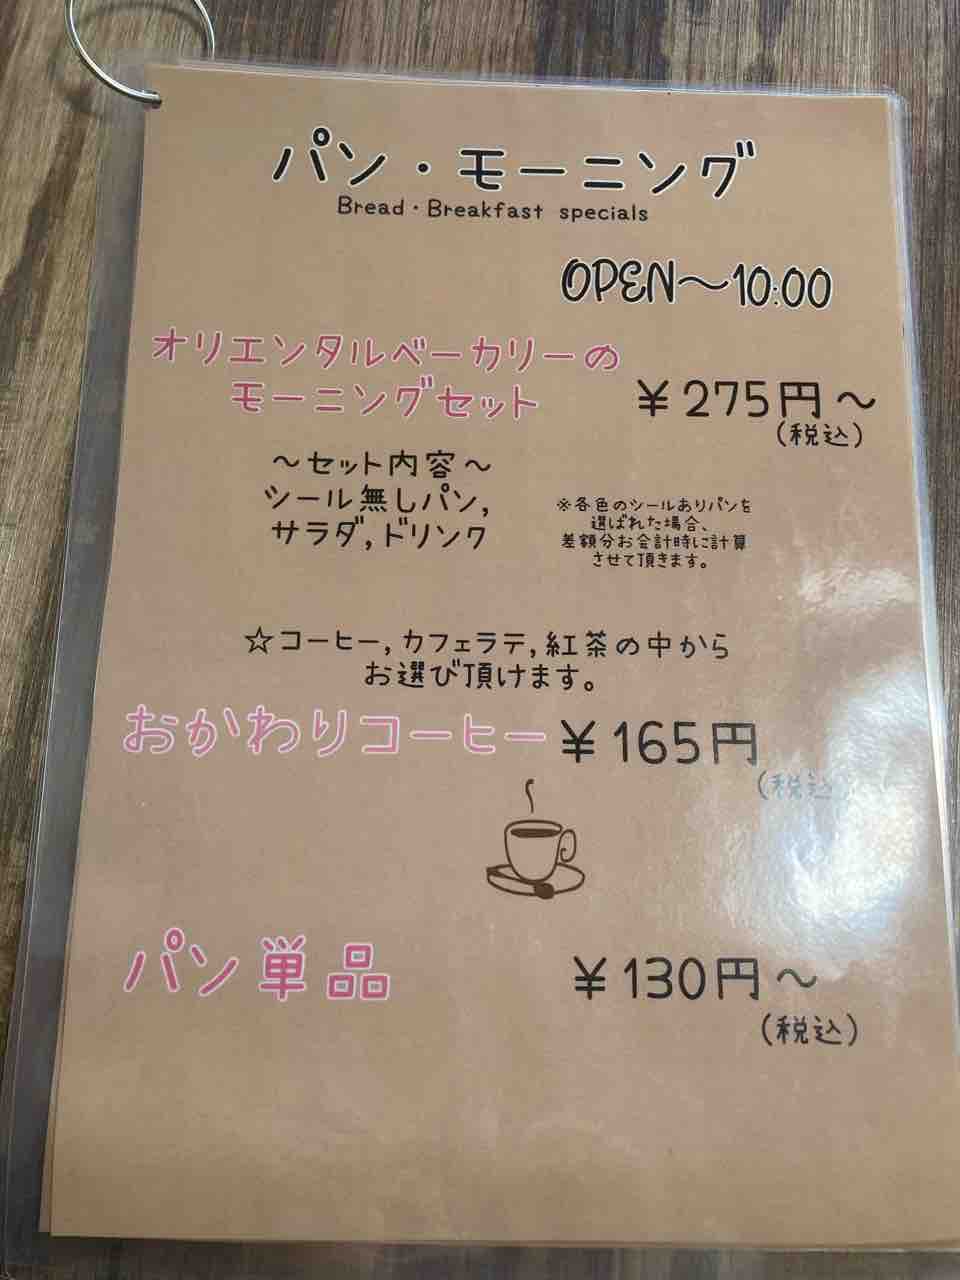 パン・モーニング
Bread・Breakfast specials
OPEN〜10:00
オリエンタルベーカリーの
モーニングセット
￥275円〜
(税込)
〜セット内容〜
シール無しパン,
サラダ,ドリンク
※各色のシールありパンを
選ばれた場合、
差額分お会計時に計算
させて頂きます。
☆コーヒー,カフェラテ,紅茶の中から
お選び頂けます。
おかわりコーヒー ￥165円
(税込)
パン単品 ￥130円〜
(税込)